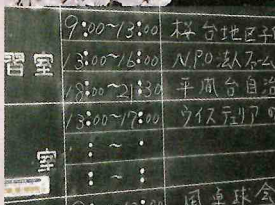 習室
9:00~13:00 桜台地区子
13:00~16:00 N.P.O.法人
18:00~21:30 平間台自治
13:00~17:00 ウイステリア
室
: ~ :
: ~ :
卓球会